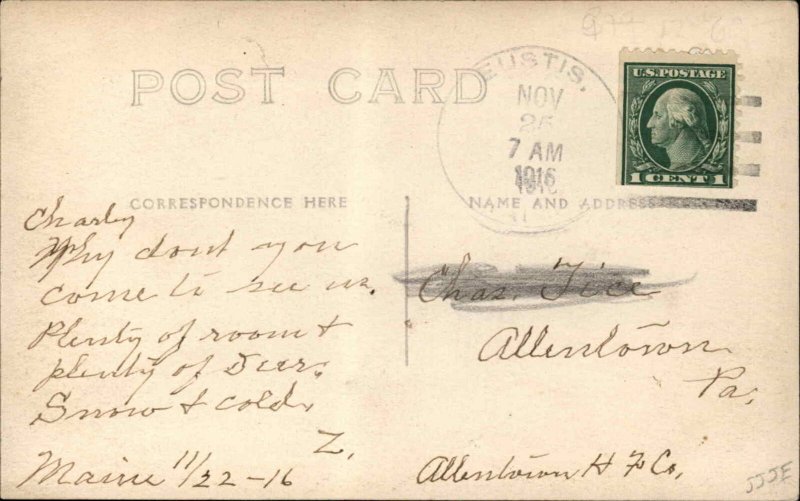 POST CARD
EUSTIS,
NOV
25
7 AM
1916
U.S. POSTAGE
1 CENT 1
CORRESPONDENCE HERE
NAME AND ADDRESS
Charley
Why dont you
come to see us.
Plenty of room &
plenty of Deer.
Snow & cold.
Z.
Maine 11/22-16
Chas. Tice
Allentown
Pa.
Allentown H F Co.
JJJE